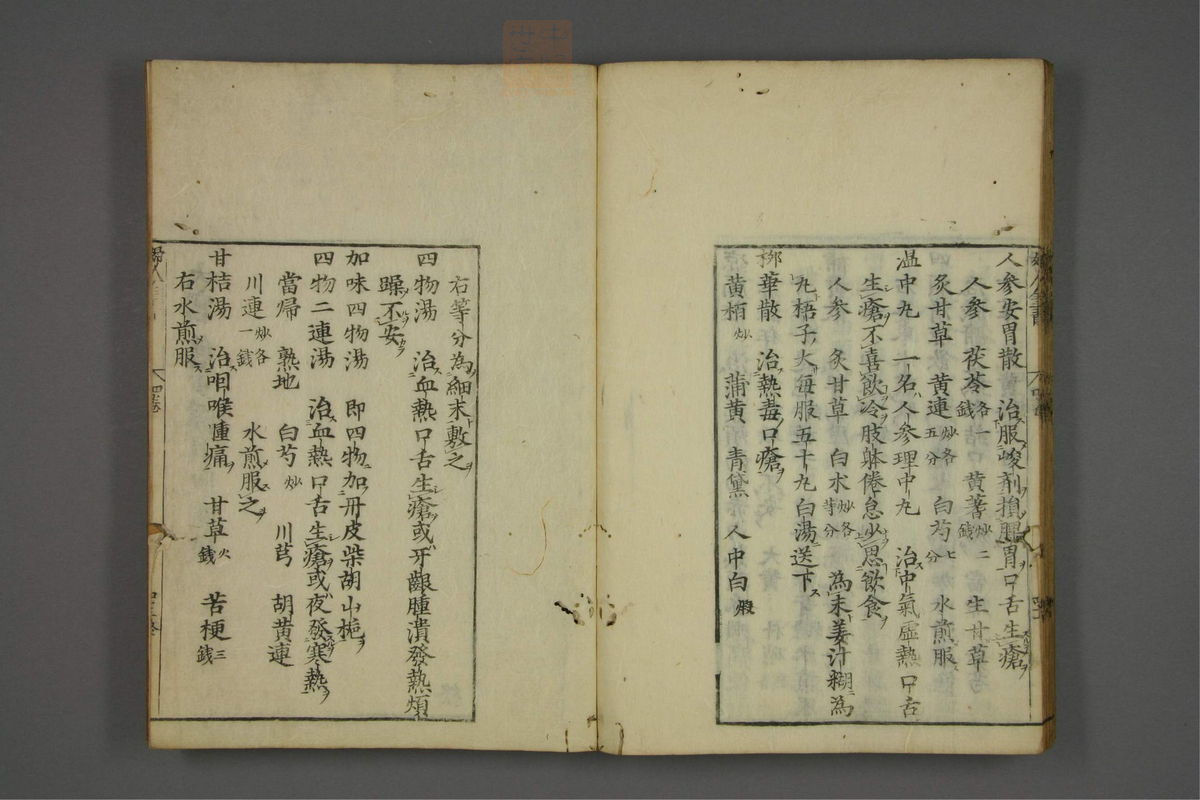 人參安胃散　治服峻剤損腸胃口舌生瘡
人參　茯苓各一錢　黄芪炒二錢　生甘草
炙甘草　黄連炒各五分　白芍七分　水煎服
温中丸　一名人參理中丸　治中氣虚熱口舌
生瘡不喜飲冷肢躰倦怠少思飲食
人參　炙甘草　白朮炒各等分　為末姜汁糊為
丸梧子大毎服五十丸白湯送下
柳華散　治熱毒口瘡
黄栢炒　蒲黄　青黛　人中白煅
右等分為細末敷之
四物湯　治血熱口舌生瘡或牙齦腫潰發熱煩
躁不安
加味四物湯　即四物加丹皮柴胡山梔
四物二連湯　治血熱口舌生瘡或夜發寒熱
當帰　熟地　白芍炒　川芎　胡黄連
川連炒各一錢　水煎服之
甘桔湯　治咽喉腫痛　甘草六錢　苦梗三錢
右水煎服